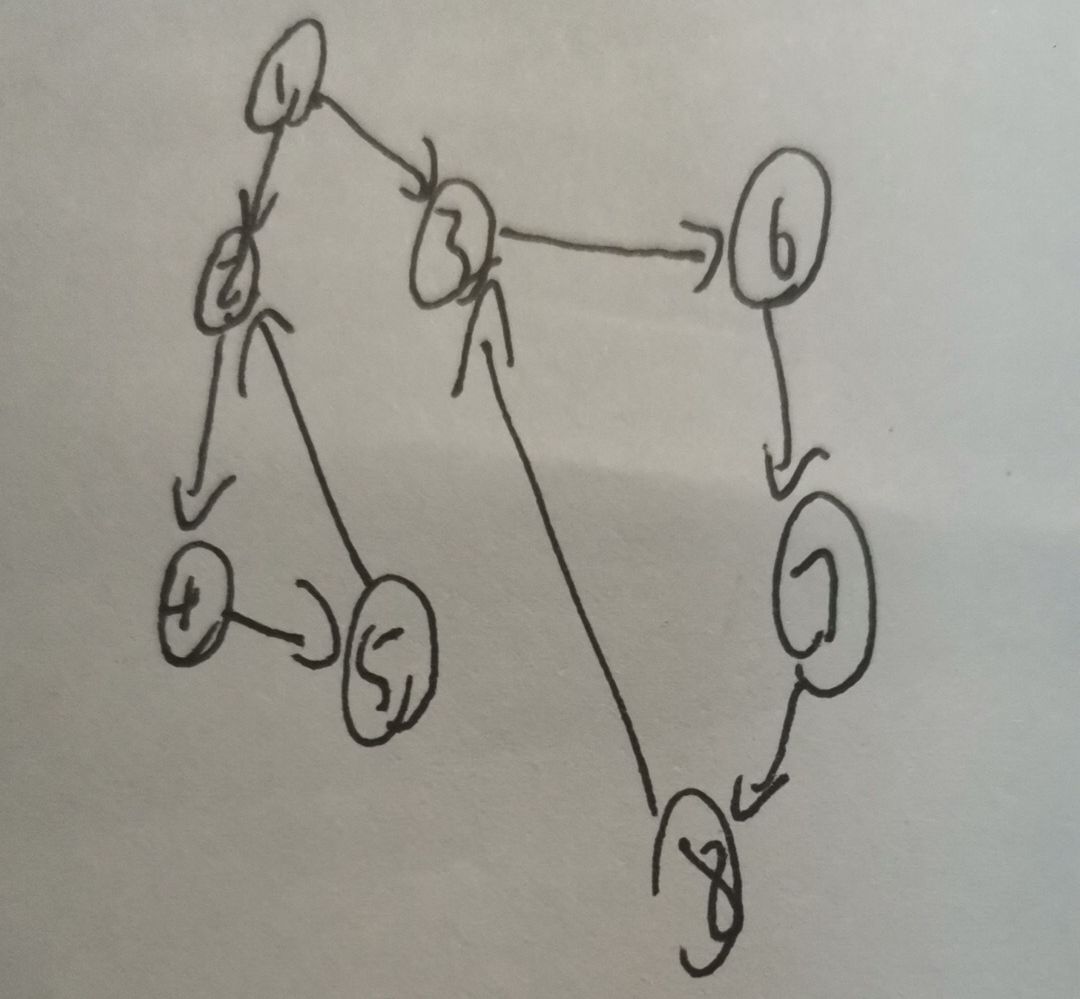 1
2
3
6
4
5
7
8